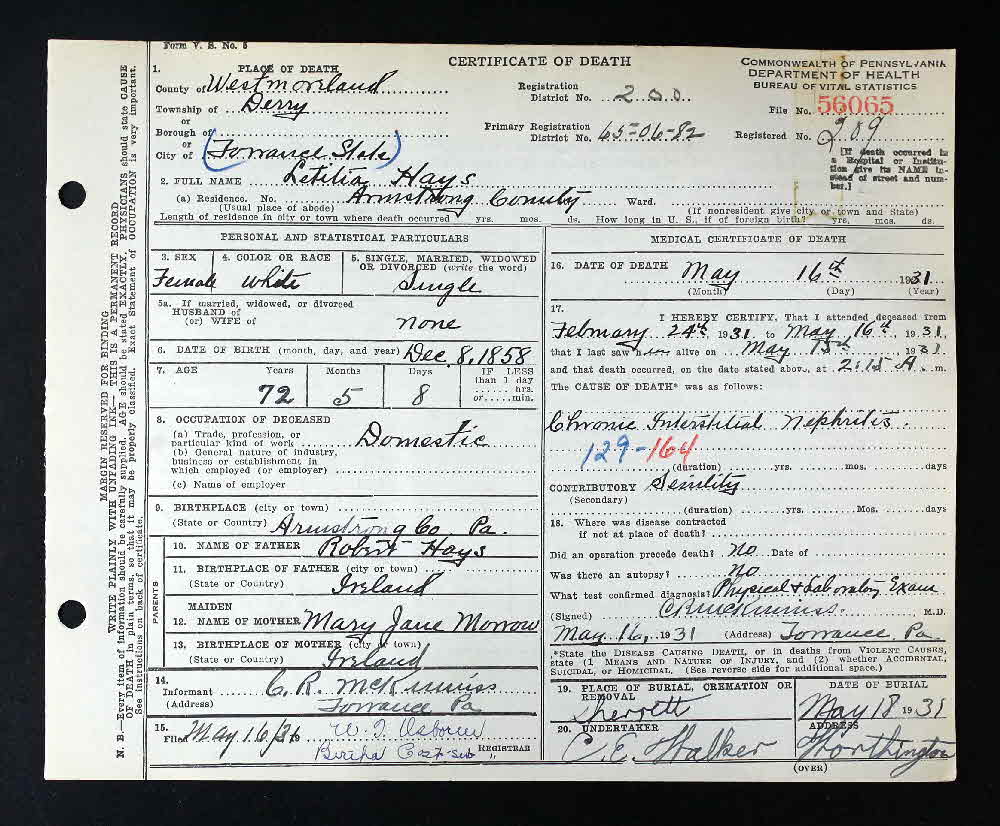 Form V. S. No. 5
CERTIFICATE OF DEATH
COMMONWEALTH OF PENNSYLVANIA
DEPARTMENT OF HEALTH
BUREAU OF VITAL STATISTICS
1. PLACE OF DEATH
County of Westmoreland
Township of Derry
or
Borough of
or
City of (Torrance State)
Registration District No. 200
Primary Registration District No. 65-06-82
File No. 56065
Registered No. 209
[If death occurred in a Hospital or Institution give its NAME instead of street and number.]
2. FULL NAME Letitia Hays
(a) Residence. No. Armstrong County Ward.
(Usual place of abode) (If nonresident give city or town and State)
Length of residence in city or town where death occurred yrs. mos. ds. How long in U. S., if of foreign birth? yrs. mos. ds.
PERSONAL AND STATISTICAL PARTICULARS
3. SEX Female
4. COLOR OR RACE White
5. SINGLE, MARRIED, WIDOWED OR DIVORCED (write the word) Single
5a. If married, widowed, or divorced
HUSBAND of
(or) WIFE of none
6. DATE OF BIRTH (month, day, and year) Dec. 8, 1858
7. AGE Years 72 Months 5 Days 8 IF LESS than 1 day hrs. or min.
8. OCCUPATION OF DECEASED
(a) Trade, profession, or particular kind of work Domestic
(b) General nature of industry, business or establishment in which employed (or employer)
(c) Name of employer
9. BIRTHPLACE (city or town)
(State or Country) Armstrong Co Pa.
PARENTS
10. NAME OF FATHER Robert Hays
11. BIRTHPLACE OF FATHER (city or town)
(State or Country) Ireland
12. MAIDEN NAME OF MOTHER Mary Jane Morrow
13. BIRTHPLACE OF MOTHER (city or town)
(State or Country) Ireland
14. Informant C. R. McKinniss
(Address) Torrance Pa
15. Filed May 16/31 19 W. T. Osborne
Bertha REGISTRAR
MEDICAL CERTIFICATE OF DEATH
16. DATE OF DEATH May 16th 1931
(Month) (Day) (Year)
17. I HEREBY CERTIFY, That I attended deceased from
February 24th, 1931 to May 16th, 1931
that I last saw her alive on May 15th 1931
and that death occurred, on the date stated above, at 2:15 A. m.
The CAUSE OF DEATH* was as follows:
Chronic Interstitial Nephritis.
129-164
(duration) yrs. mos. days
CONTRIBUTORY Senility
(Secondary)
(duration) yrs. Mos. days
18. Where was disease contracted
if not at place of death?
Did an operation precede death? No Date of
Was there an autopsy? no
What test confirmed diagnosis? Physical & Laboratory Exam
(Signed) CR McKinniss. M.D.
May 16, 1931 (Address) Torrance, Pa.
*State the DISEASE CAUSING DEATH, or in deaths from VIOLENT CAUSES, state (1) MEANS AND NATURE OF INJURY, and (2) whether ACCIDENTAL, SUICIDAL, or HOMICIDAL. (See reverse side for additional space.)
19. PLACE OF BURIAL, CREMATION OR REMOVAL Sherrett
DATE OF BURIAL May 18 1931
20. UNDERTAKER C. E. Walker
ADDRESS Worthington
(OVER)
MARGIN RESERVED FOR BINDING
WRITE PLAINLY WITH UNFADING INK—THIS IS A PERMANENT RECORD.
N. B.—Every item of information should be carefully supplied. AGE should be stated EXACTLY, PHYSICIANS should state CAUSE OF DEATH in plain terms, so that it may be properly classified. Exact Statement of OCCUPATION is very important.
See instructions on back of certificate.